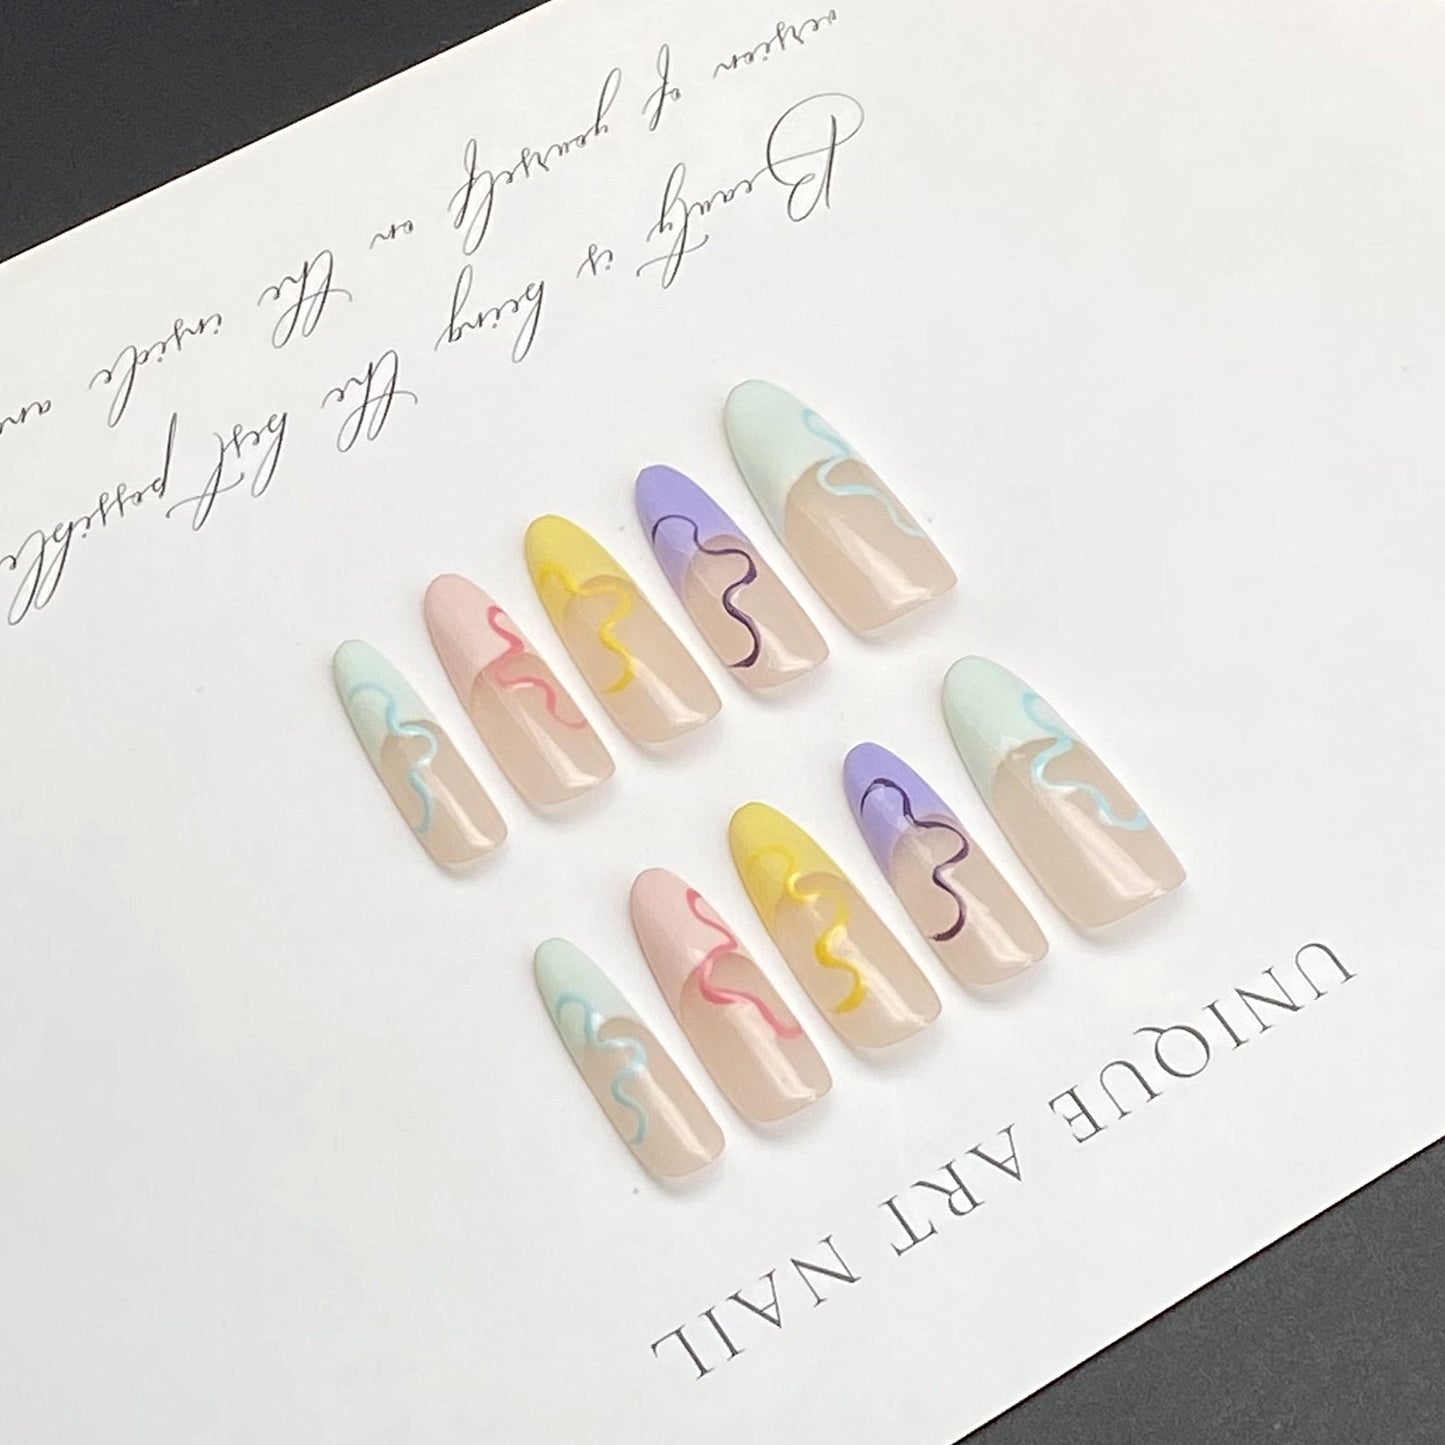 Beauty is being the best possible
version of yourself on the inside an
UNIQUE ART NAIL